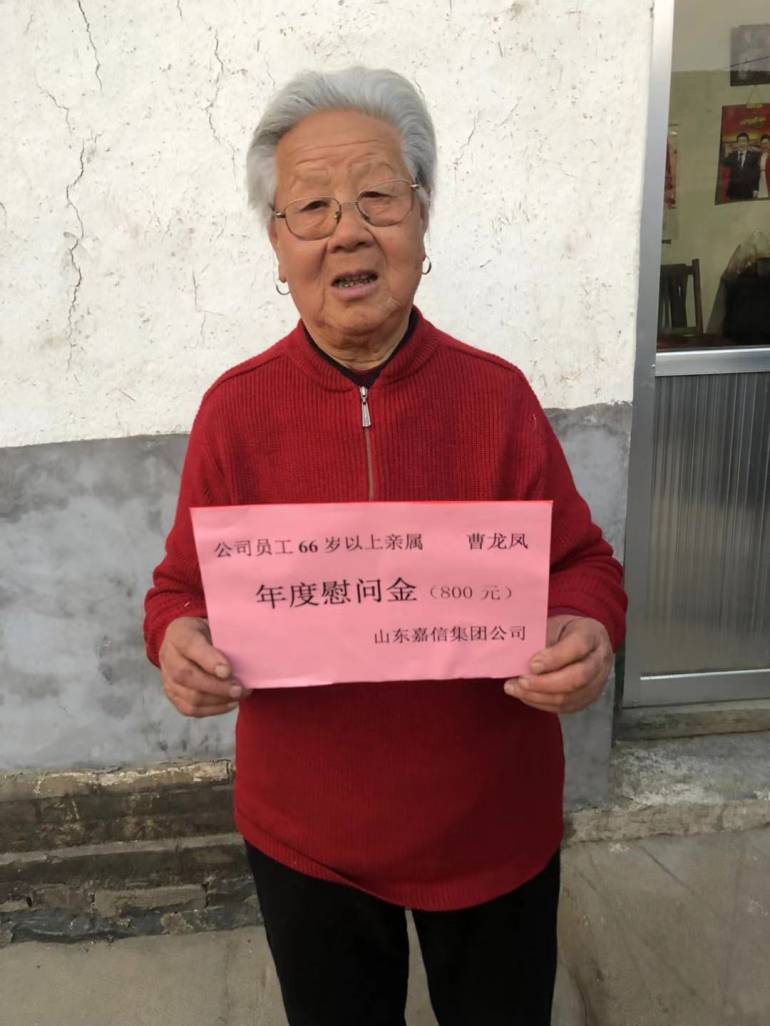 公司员工66岁以上亲属 曹龙凤
年度慰问金（800元）
山东嘉信集团公司